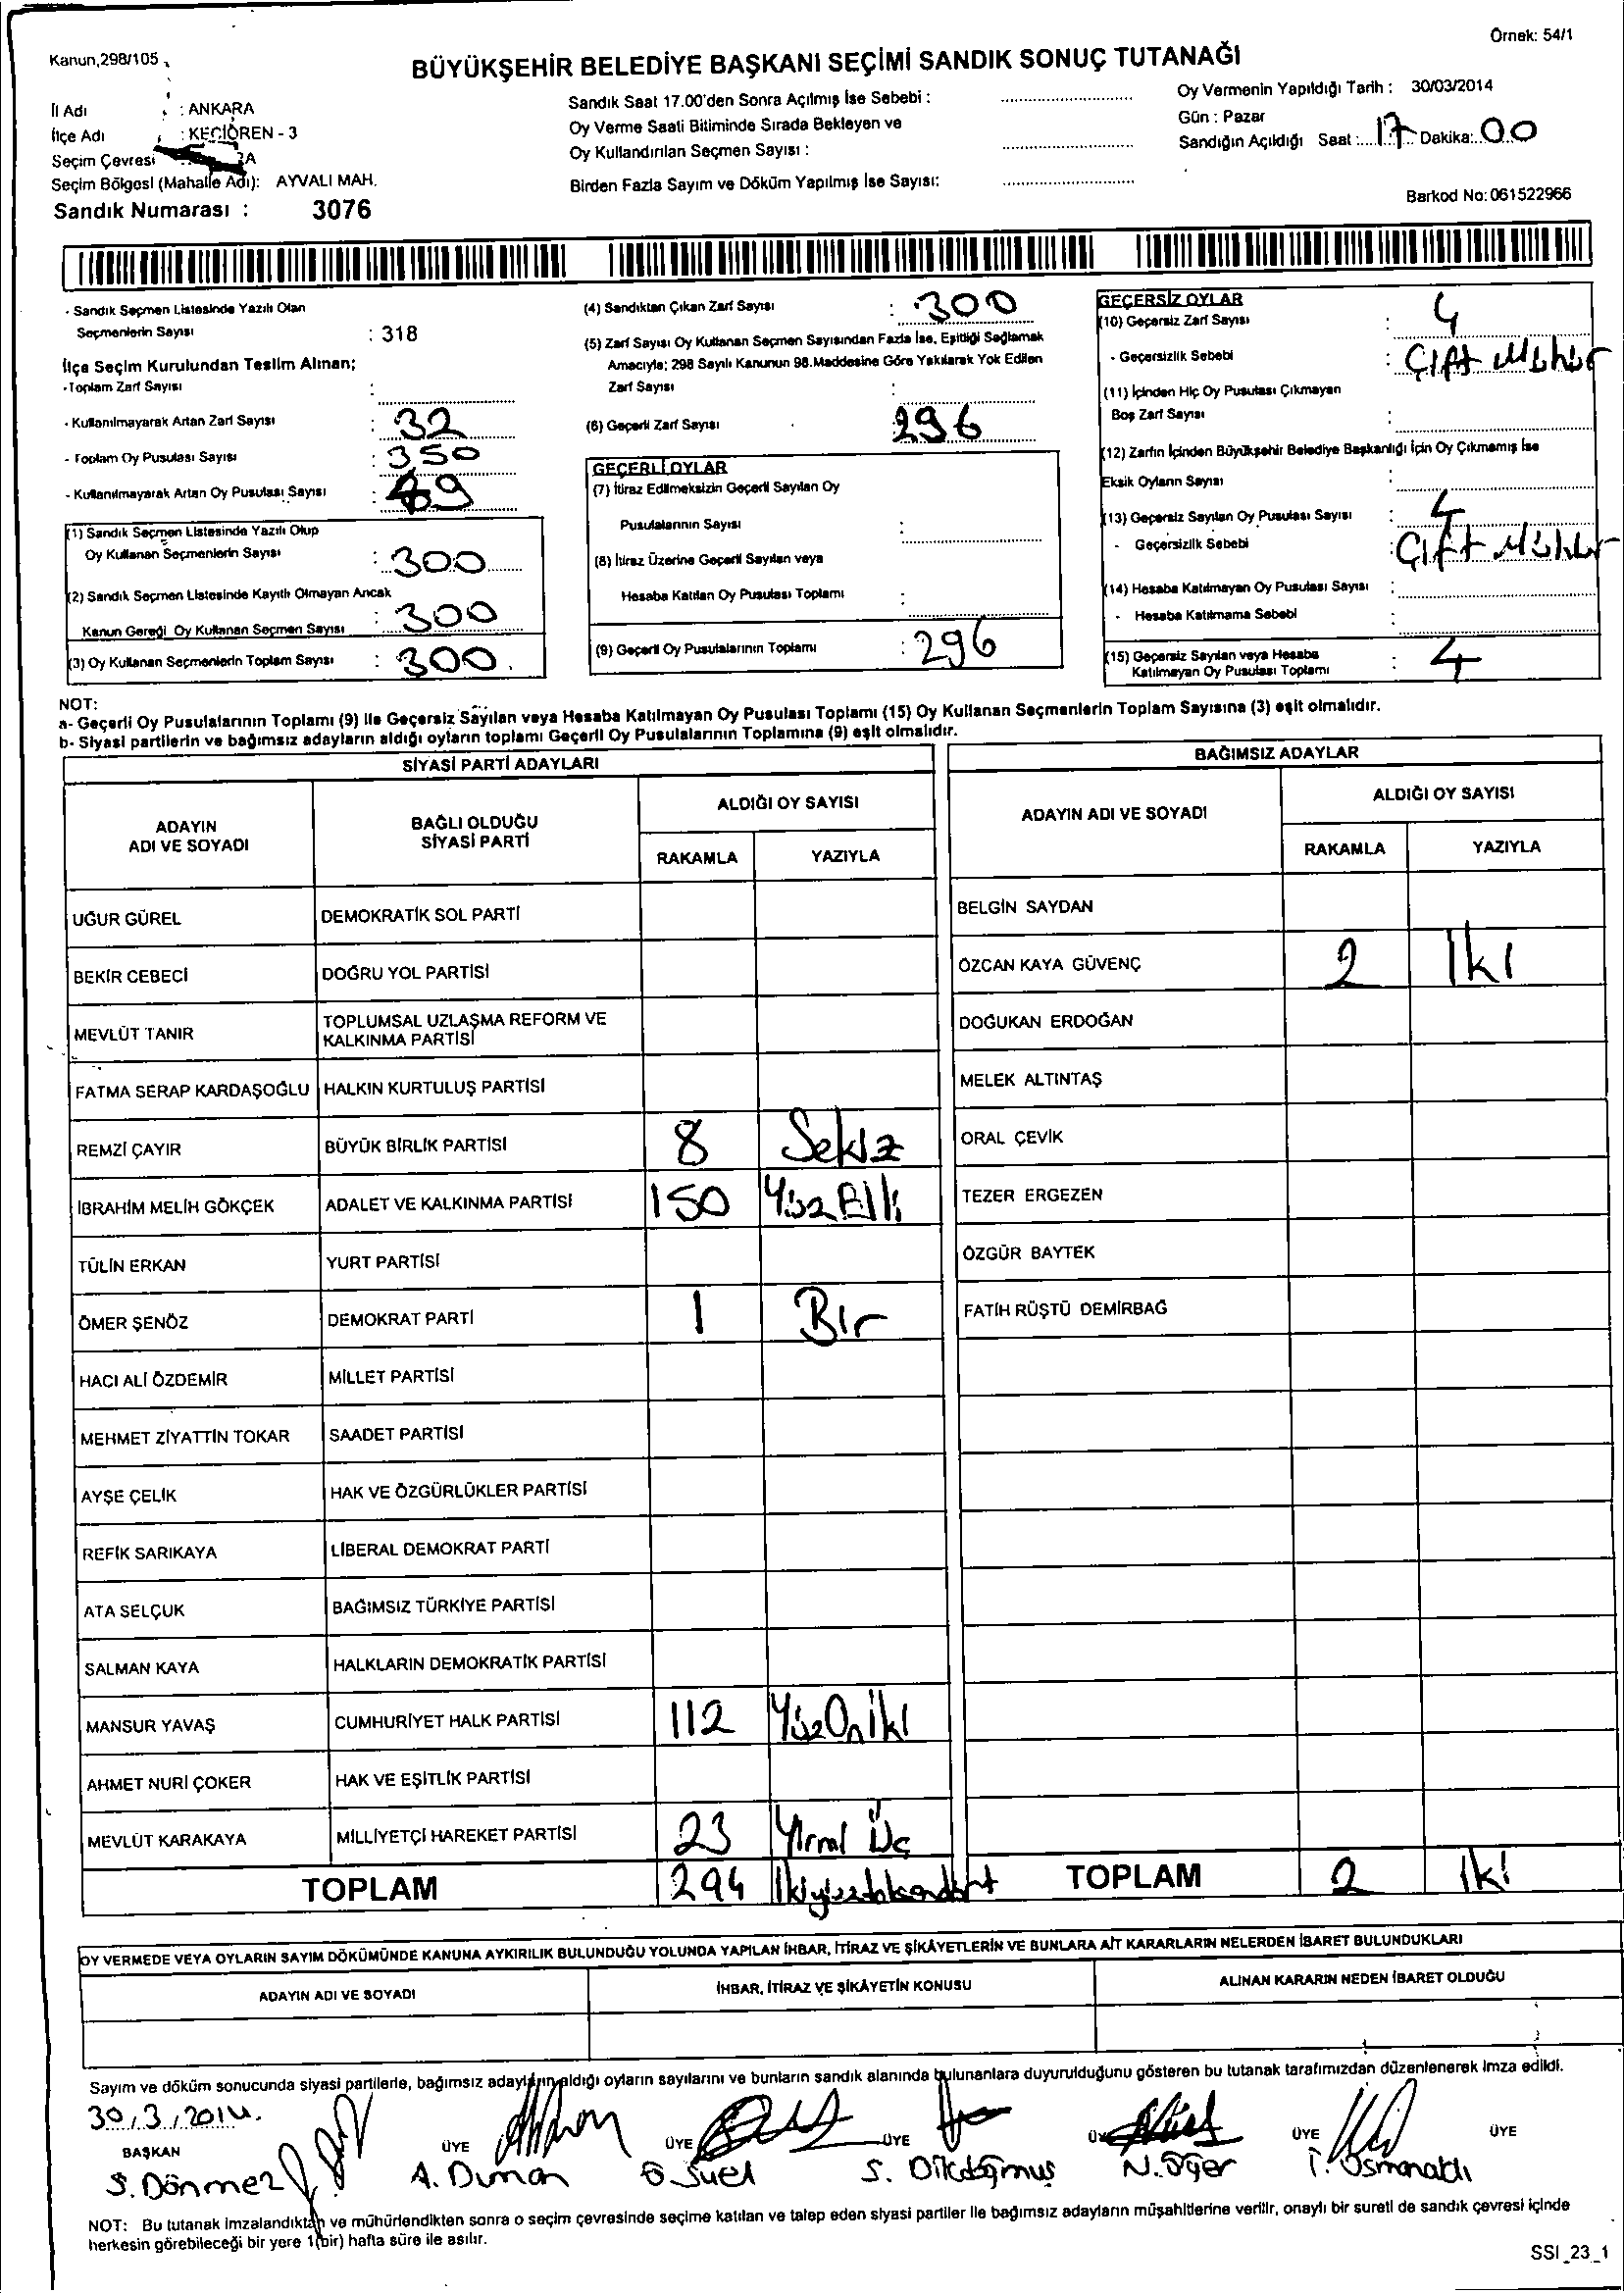 Örnek: 54/1
Kanun,298/105
BÜYÜKŞEHİR BELEDİYE BAŞKANI SEÇİMİ SANDIK SONUÇ TUTANAĞI
İl Adı : ANKARA
İlçe Adı : KEÇİÖREN - 3
Seçim Çevresi
Seçim Bölgesi (Mahalle Adı): AYVALI MAH.
Sandık Numarası : 3076
Sandık Saat 17.00'den Sonra Açılmış İse Sebebi :
Oy Verme Saati Bitiminde Sırada Bekleyen ve
Oy Kullandırılan Seçmen Sayısı :
Birden Fazla Sayım ve Döküm Yapılmış İse Sayısı:
Oy Vermenin Yapıldığı Tarih : 30/03/2014
Gün : Pazar
Sandığın Açıldığı Saat : 17 Dakika: 00
Barkod No: 061522966
- Sandık Seçmen Listesinde Yazılı Olan
Seçmenlerin Sayısı : 318
İlçe Seçim Kurulundan Teslim Alınan;
-Toplam Zarf Sayısı :
- Kullanılmayarak Artan Zarf Sayısı : 32
- Toplam Oy Pusulası Sayısı : 350
- Kullanılmayarak Artan Oy Pusulası Sayısı :
(1) Sandık Seçmen Listesinde Yazılı Olup
Oy Kullanan Seçmenlerin Sayısı : 300
(2) Sandık Seçmen Listesinde Kayıtlı Olmayan Ancak
Kanun Gereği Oy Kullanan Seçmen Sayısı : 300
(3) Oy Kullanan Seçmenlerin Toplam Sayısı : 300
(4) Sandıktan Çıkan Zarf Sayısı : 300
(5) Zarf Sayısı Oy Kullanan Seçmen Sayısından Fazla İse, Eşitliği Sağlamak
Amacıyla; 298 Sayılı Kanunun 98.Maddesine Göre Yakılarak Yok Edilen
Zarf Sayısı :
(6) Geçerli Zarf Sayısı 296
GEÇERLİ OYLAR
(7) İtiraz Edilmeksizin Geçerli Sayılan Oy
Pusulalarının Sayısı :
(8) İtiraz Üzerine Geçerli Sayılan veya
Hesaba Katılan Oy Pusulası Toplamı :
(9) Geçerli Oy Pusulalarının Toplamı : 296
GEÇERSİZ OYLAR
(10) Geçersiz Zarf Sayısı : 4
- Geçersizlik Sebebi : Çift Mühür
(11) İçinden Hiç Oy Pusulası Çıkmayan
Boş Zarf Sayısı :
(12) Zarfın İçinden Büyükşehir Belediye Başkanlığı İçin Oy Çıkmamış İse
Eksik Oyların Sayısı :
(13) Geçersiz Sayılan Oy Pusulası Sayısı : 4
- Geçersizlik Sebebi : Çift Mühür
(14) Hesaba Katılmayan Oy Pusulası Sayısı :
- Hesaba Katılmama Sebebi :
(15) Geçersiz Sayılan veya Hesaba
Katılmayan Oy Pusulası Toplamı : 4
NOT:
a- Geçerli Oy Pusulalarının Toplamı (9) ile Geçersiz Sayılan veya Hesaba Katılmayan Oy Pusulası Toplamı (15) Oy Kullanan Seçmenlerin Toplam Sayısına (3) eşit olmalıdır.
b- Siyasi partilerin ve bağımsız adayların aldığı oyların toplamı Geçerli Oy Pusulalarının Toplamına (9) eşit olmalıdır.
SİYASİ PARTİ ADAYLARI
ADAYIN ADI VE SOYADI BAĞLI OLDUĞU SİYASİ PARTİ ALDIĞI OY SAYISI
RAKAMLA YAZIYLA
UĞUR GÜREL DEMOKRATİK SOL PARTİ
BEKİR CEBECİ DOĞRU YOL PARTİSİ
MEVLÜT TANIR TOPLUMSAL UZLAŞMA REFORM VE KALKINMA PARTİSİ
FATMA SERAP KARDAŞOĞLU HALKIN KURTULUŞ PARTİSİ
REMZİ ÇAYIR BÜYÜK BİRLİK PARTİSİ 8 Sekiz
İBRAHİM MELİH GÖKÇEK ADALET VE KALKINMA PARTİSİ 150 Yüz Elli
TÜLİN ERKAN YURT PARTİSİ
ÖMER ŞENÖZ DEMOKRAT PARTİ 1 Bir
HACI ALİ ÖZDEMİR MİLLET PARTİSİ
MEHMET ZİYATTİN TOKAR SAADET PARTİSİ
AYŞE ÇELİK HAK VE ÖZGÜRLÜKLER PARTİSİ
REFİK SARIKAYA LİBERAL DEMOKRAT PARTİ
ATA SELÇUK BAĞIMSIZ TÜRKİYE PARTİSİ
SALMAN KAYA HALKLARIN DEMOKRATİK PARTİSİ
MANSUR YAVAŞ CUMHURİYET HALK PARTİSİ 112 Yüz On İki
AHMET NURİ ÇOKER HAK VE EŞİTLİK PARTİSİ
MEVLÜT KARAKAYA MİLLİYETÇİ HAREKET PARTİSİ 23 Yirmi Üç
TOPLAM 294 İkiyüzdoksandört
BAĞIMSIZ ADAYLAR
ADAYIN ADI VE SOYADI ALDIĞI OY SAYISI
RAKAMLA YAZIYLA
BELGİN SAYDAN
ÖZCAN KAYA GÜVENÇ 2 İki
DOĞUKAN ERDOĞAN
MELEK ALTINTAŞ
ORAL ÇEVİK
TEZER ERGEZEN
ÖZGÜR BAYTEK
FATİH RÜŞTÜ DEMİRBAĞ
TOPLAM 2 İki
OY VERMEDE VEYA OYLARIN SAYIM DÖKÜMÜNDE KANUNA AYKIRILIK BULUNDUĞU YOLUNDA YAPILAN İHBAR, İTİRAZ VE ŞİKÂYETLERİN VE BUNLARA AİT KARARLARIN NELERDEN İBARET BULUNDUKLARI
ADAYIN ADI VE SOYADI İHBAR, İTİRAZ VE ŞİKÂYETİN KONUSU ALINAN KARARIN NEDEN İBARET OLDUĞU
Sayım ve döküm sonucunda siyasi partilerle, bağımsız adayların aldığı oyların sayılarını ve bunların sandık alanında bulunanlara duyurulduğunu gösteren bu tutanak tarafımızdan düzenlenerek imza edildi.
30/3/2014.
BAŞKAN ÜYE ÜYE ÜYE ÜYE ÜYE ÜYE
S. Dönmez A. Duman Ö. Suel S. Dikdoğmuş N. Öğer İ. Osmanaklı
NOT: Bu tutanak imzalandıktan ve mühürlendikten sonra o seçim çevresinde seçime katılan ve talep eden siyasi partiler ile bağımsız adayların müşahitlerine verilir, onaylı bir sureti de sandık çevresi içinde
herkesin görebileceği bir yere 1(bir) hafta süre ile asılır.
SSI_23_1